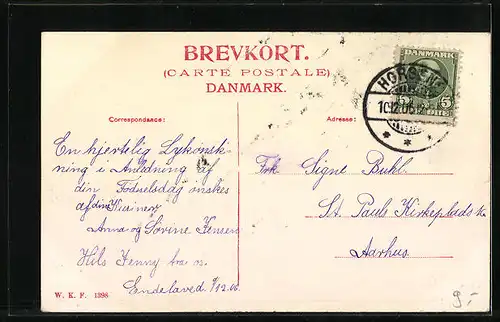 BREVKORT.
(CARTE POSTALE)
DANMARK.
DANMARK
5
HORSENS
10.12.06
Correspondance:
Adresse:
En hjertelig Lykønsk-
ning i Anledning af
din Fødselsdag ønskes
af din
Anna og Sørine Jensen
Hils Jenny fra os.
Endelaved. 9/12.06
Frk Signe Buhl.
St. Pauls Kirkeplads
Aarhus
W. K. F. 1398
9.-